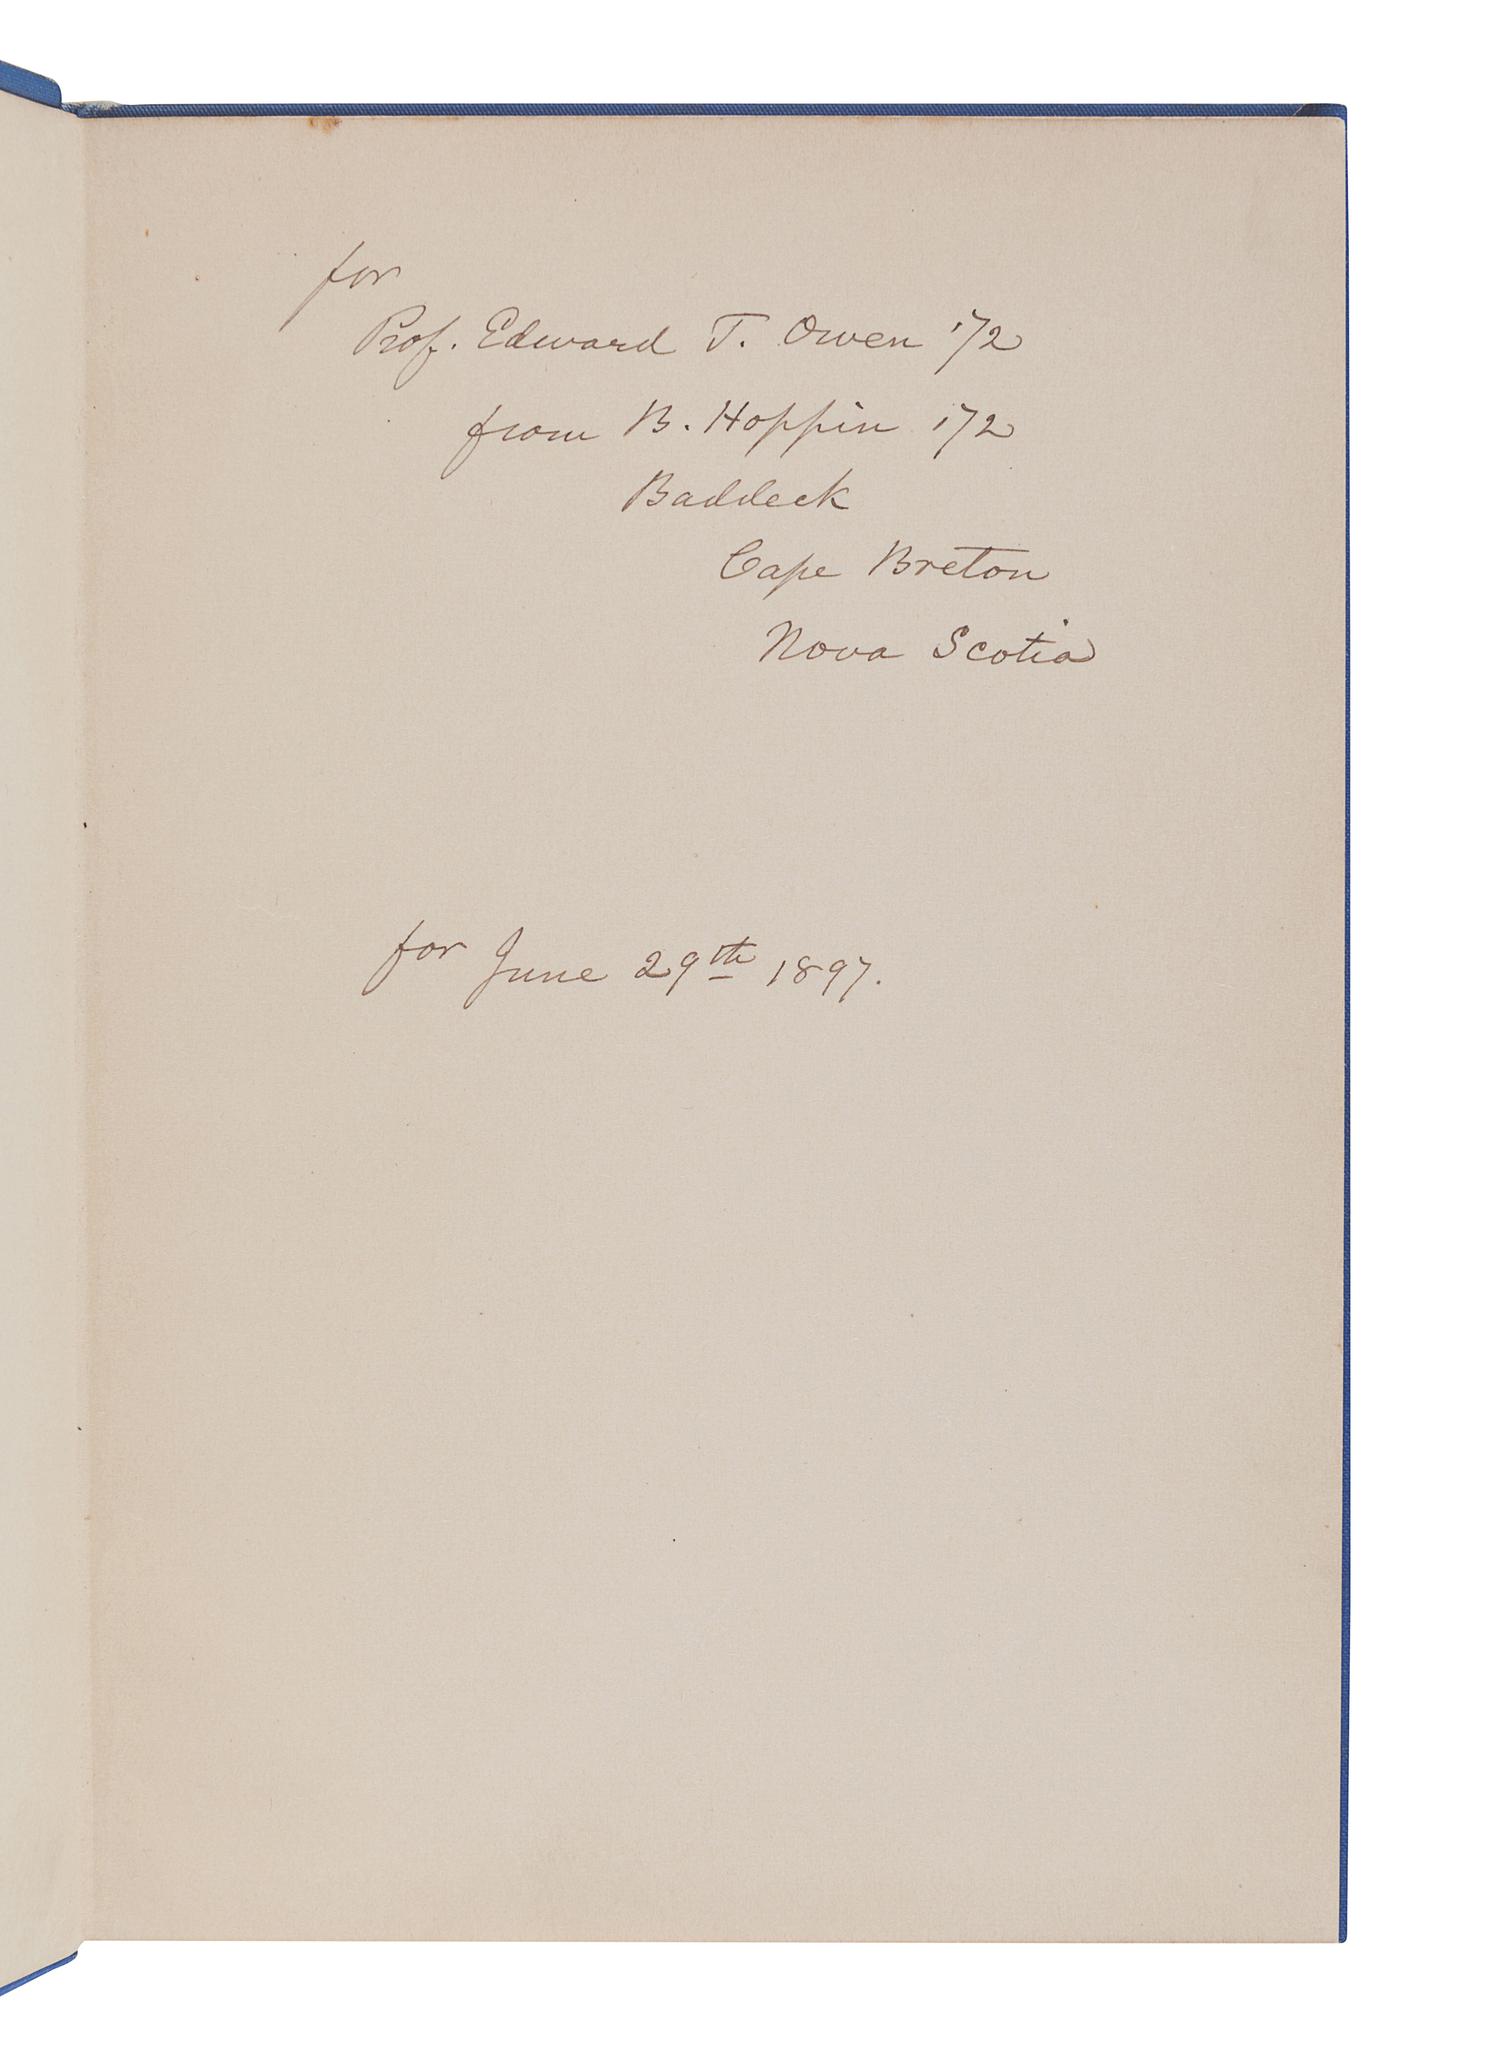 for
Prof. Edward T. Owen '72
from B. Hoppin '72
Baddeck
Cape Breton
Nova Scotia
for June 29th 1897.